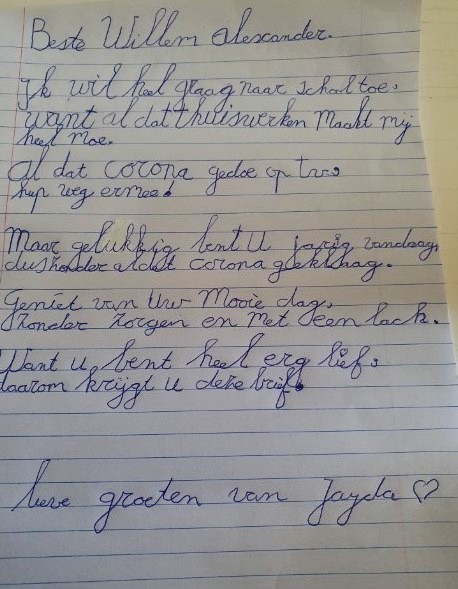 Beste Willem alexander.
Ik wil heel graag naar school toe,
want al dat thuiswerken maakt mij
heel moe.
al dat corona gedoe op t.v.
hup weg ermee!
Maar gelukkig bent U jarig vandaag,
dus zonder al dat corona geklaag.
Geniet van Uw Mooie dag,
zonder zorgen en met een lach.
Want u bent heel erg lief,
daarom krijgt u deze brief.
lieve groeten van Jayda ♡